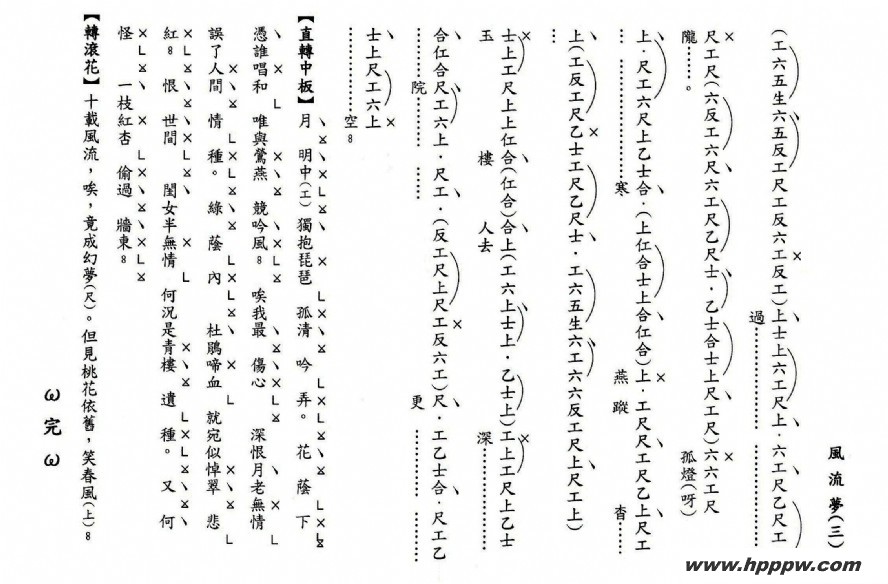 風流夢(三)
(工六五生六五反工尺工反六工反工)上士上六工尺上．六工尺乙尺工
過
尺工尺(六反工六尺六工尺乙尺士．乙士合士上尺工尺)六六工尺
隴⋯⋯。 孤燈(呀)
上．尺工六尺上乙士合．(上仩合士上合仩合)上．工尺尺工尺乙上尺工
寒 燕蹤 杳
上(工反工尺乙士工尺乙尺士．工六五生六工六六反工尺上尺工上)
士上工尺上上仩合(仩合)合上(工六上士上．乙士上)工上工尺上乙士
玉 樓 人去 深
合仩合尺工六上．尺工．(反工尺上尺工反六工)尺．工乙士合．尺工乙
院 更
士上尺工六上
空。
【直轉中板】月 明中(工)獨抱琵琶 孤清 吟 弄。 花 蔭 下
憑誰唱和 唯與鶯燕 競吟風。 唉我最 傷心 深恨月老無情
誤了人間 情 種。 綠 蔭 內 杜鵑啼血 就宛似悼翠 悲
紅。 恨 世間 閨女半無情 何況是青樓 遺 種。 又 何
怪 一枝紅杏 偷過 牆東。
【轉滾花】十載風流，唉，竟成幻夢(尺)。但見桃花依舊，笑春風(上)。
ω 完 ω
www.hpppw.com